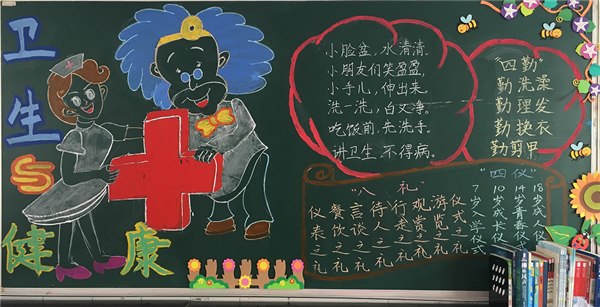 卫生与健康
小脸盆,水清清,
小朋友们笑盈盈,
小手儿,伸出来,
洗一洗,白又净。
吃饭前,先洗手。
讲卫生,不得病。
"四勤"
勤洗澡
勤理发
勤换衣
勤剪甲
"八礼"
仪表之礼
餐饮之礼
言谈之礼
待人之礼
行走之礼
观赏之礼
游览之礼
仪式之礼
"四仪"
7岁入学仪式
10岁成长仪式
14岁青春仪式
18岁成人仪式